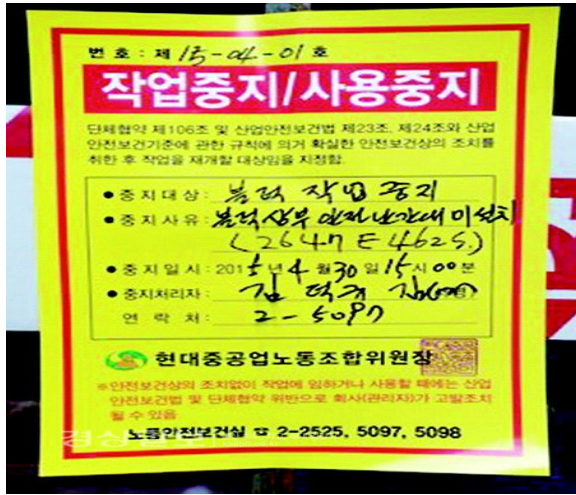 번호 : 제 15-04-01 호
작업중지/사용중지
단체협약 제106조 및 산업안전보건법 제23조, 제24조와 산업
안전보건기준에 관한 규칙에 의거 확실한 안전보건상의 조치를
취한 후 작업을 재개할 대상임을 지정함.
● 중지대상 : 블럭 작업 중지
● 중지사유 : 블럭상부 안전난간대 미설치
(2647 E462S.)
● 중지일시 : 2015년 4월 30일 15시 00분
● 중지처리자 : 김
연락처 : 2-5097
현대중공업노동조합위원장
※안전보건상의 조치없이 작업에 임하거나 사용할 때에는 산업
안전보건법 및 단체협약 위반으로 회사(관리자)가 고발조치
될 수 있음
노동안전보건실 ☎ 2-2525, 5097, 5098